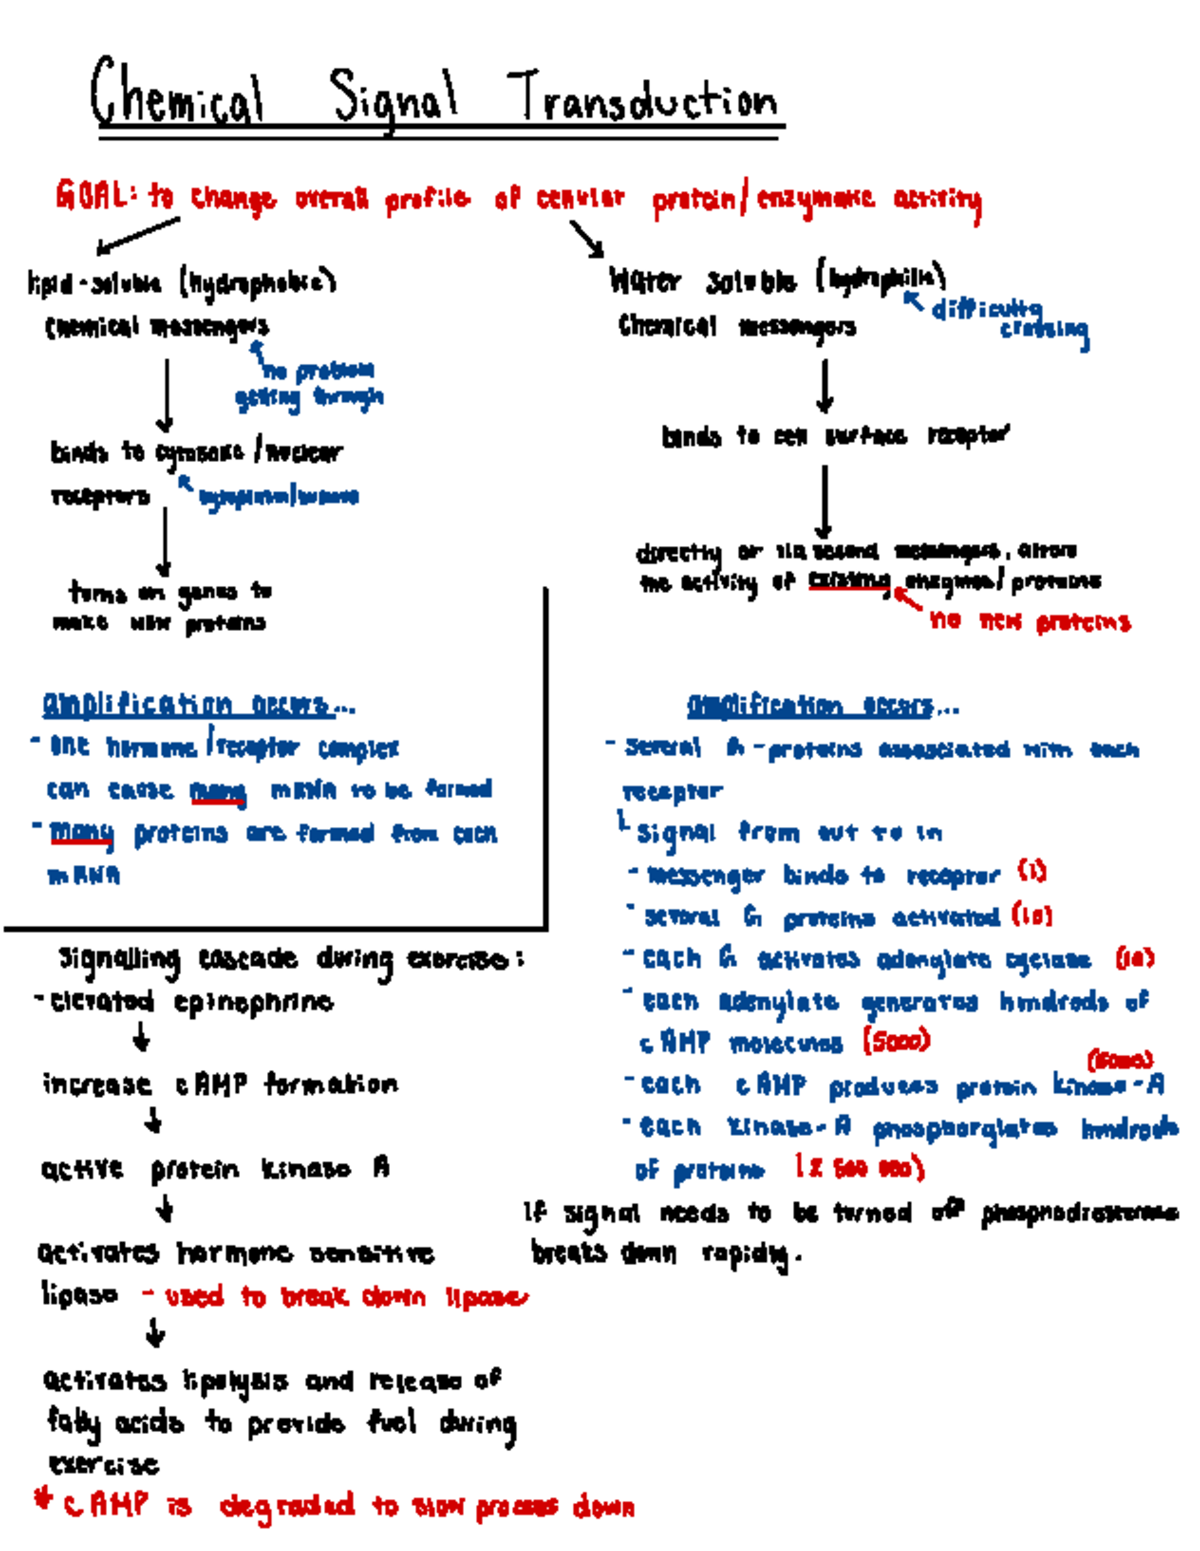 Chemical Signal Transduction
GOAL: to change overall profile of cellular protein/enzymatic activity
lipid-soluble (hydrophobic)
chemical messengers
no problem
getting through
binds to cytosolic/nuclear
receptors
turns on genes to
make new proteins
Water soluble (hydrophilic)
difficulty
crossing
chemical messengers
binds to cell surface receptor
directly or via second messengers, alters
the activity of existing enzymes/proteins
no new proteins
amplification occurs...
- one hormone/receptor complex
can cause many mRNA to be formed
- many proteins are formed from each
mRNA
amplification occurs...
- several G-proteins associated with each
receptor
signal from out to in
- messenger binds to receptor (1)
- several G proteins activated (10)
- each G activates adenylate cyclase (10)
- each adenylate generates hundreds of
cAMP molecules (5000)
(5000)
- each cAMP produces protein kinase-A
- each kinase-A phosphorylates hundreds
of proteins
If signal needs to be turned off
breaks down rapidly.
signalling cascade during exercise:
- elevated epinephrine
increase cAMP formation
active protein kinase A
activates hormone sensitive
lipase - used to break down lipase
activates lipolysis and release of
fatty acids to provide fuel during
exercise
* cAMP is degraded to slow process down